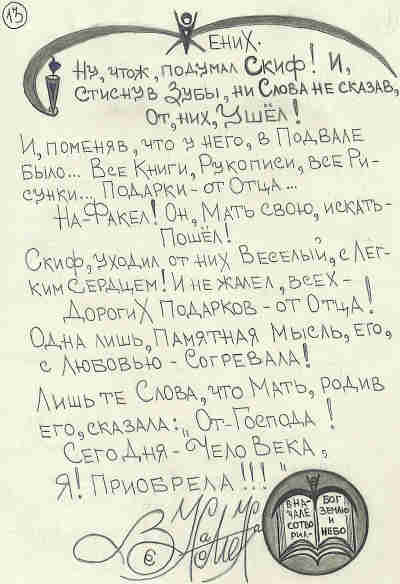 13
ЕНИХ.
НУ, ЧТОЖ, ПОДУМАЛ СКИФ! И,
СТИСНУВ ЗУБЫ, НИ СЛОВА НЕ СКАЗАВ,
ОТ, НИХ, УШЁЛ!
И, ПОМЕНЯВ, ЧТО У НЕГО, В ПОДВАЛЕ
БЫЛО... ВСЕ КНИГИ, РУКОПИСИ, ВСЕ РИ-
СУНКИ... ПОДАРКИ - ОТ ОТЦА...
НА-ФАКЕЛ! ОН, МАТЬ СВОЮ, ИСКАТЬ-
ПОШЁЛ!
СКИФ, УХОДИЛ ОТ НИХ ВЕСЕЛЫЙ, С ЛЁГ-
КИМ СЕРДЦЕМ! И НЕ ЖАЛЕЛ, ВСЕХ -
ДОРОГИХ ПОДАРКОВ - ОТ ОТЦА!
ОДНА ЛИШЬ, ПАМЯТНАЯ МЫСЛЬ, ЕГО,
С ЛЮБОВЬЮ - СОГРЕВАЛА!
ЛИШЬ ТЕ СЛОВА, ЧТО МАТЬ, РОДИВ
ЕГО, СКАЗАЛА: „ОТ-ГОСПОДА!
СЕГО ДНЯ - ЧЕЛО ВЕКА,
Я! ПРИОБРЕЛА!!!"
В НА-
ЧАЛЕ
СОТВО
РИЛ-
БОГ
ЗЕМЛЮ
И
НЕБО